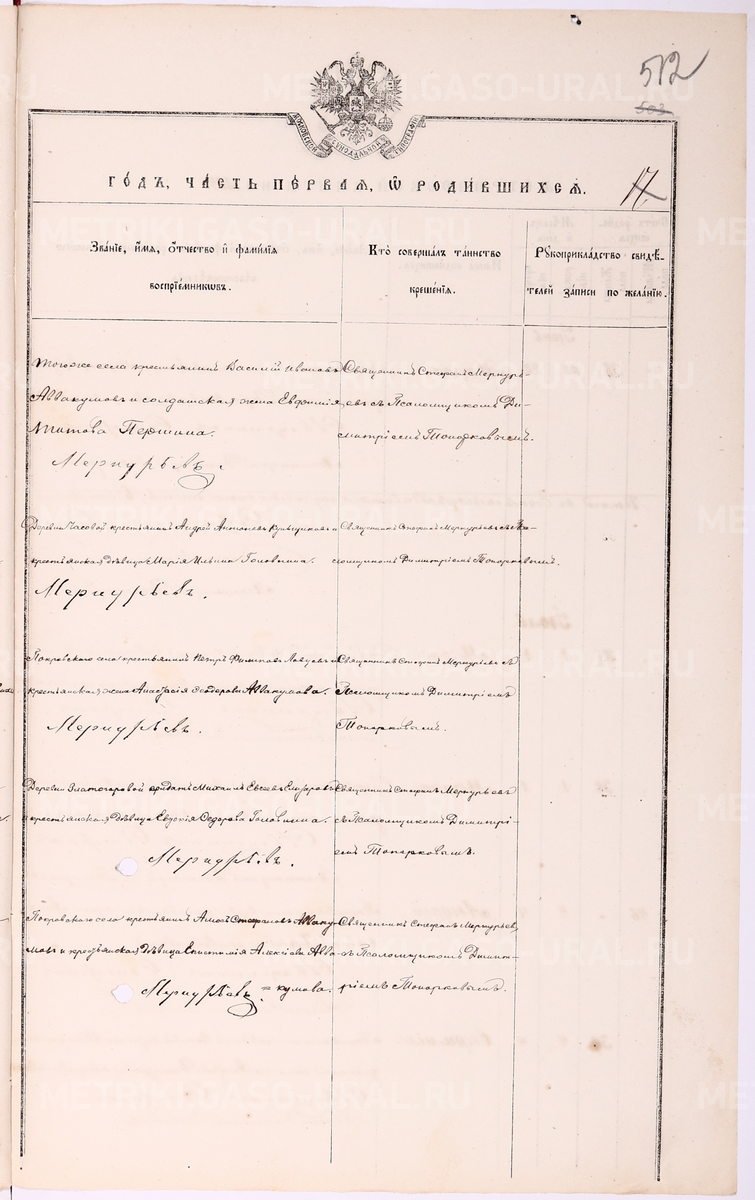 512
503
17
МОСКОВСКАЯ СИНОДАЛЬНАЯ ТИПОГРАФІЯ
ГО́ДЪ, ЧА́СТЬ ПЕ́РВАЯ, Ѽ РОДИ́ВШИХСЯ.
Зва́нїе, и́мя, о́тчество и҆ фами́лїя
воспрїе́мниковъ.
Кто̀ соверша́лъ та́инство
креще́нїя.
Рꙋкоприкла́дство свидѣ́-
телей за́писи по жела́нїю.
Тогоже села крестьянинъ Василій Ивановъ
Аввакумовъ и солдатская жена Евфимія
Першина.
Меркурьевъ.
Священникъ Стефанъ Меркурь-
евъ съ Псаломщикомъ Ди-
митріемъ Топорковымъ.
Деревни Часовой крестьянинъ Андрей Антоновъ и
крестьянская дѣвица Марія Ильина Головина.
Меркурьевъ.
Священникъ Стефанъ Меркурьевъ съ Пса-
ломщикомъ Димитріемъ Топорковымъ.
Покровскаго села крестьянинъ Петръ Филиповъ и
крестьянская жена Анастасія Ѳеодорова Аввакумова.
Меркурьевъ.
Священникъ Стефанъ Меркурьевъ съ
Псаломщикомъ Димитріемъ
Топорковымъ.
Деревни Златогоровой солдатъ Михаилъ Евсеевъ
и крестьянская дѣвица Евдокія Ѳедорова Головина.
Меркурьевъ.
Священникъ Стефанъ Меркурьевъ
съ Псаломщикомъ Димитрі-
емъ Топорковымъ.
Покровскаго села крестьянинъ Амосъ Стефановъ Аваку-
мовъ и крестьянская дѣвица Епистимія Алексіева Авва-
кумова.
Меркурьевъ
Священникъ Стефанъ Меркурьев
съ Псаломщикомъ Димит-
ріемъ Топорковымъ.
METRIKI.GASO-URAL.RU